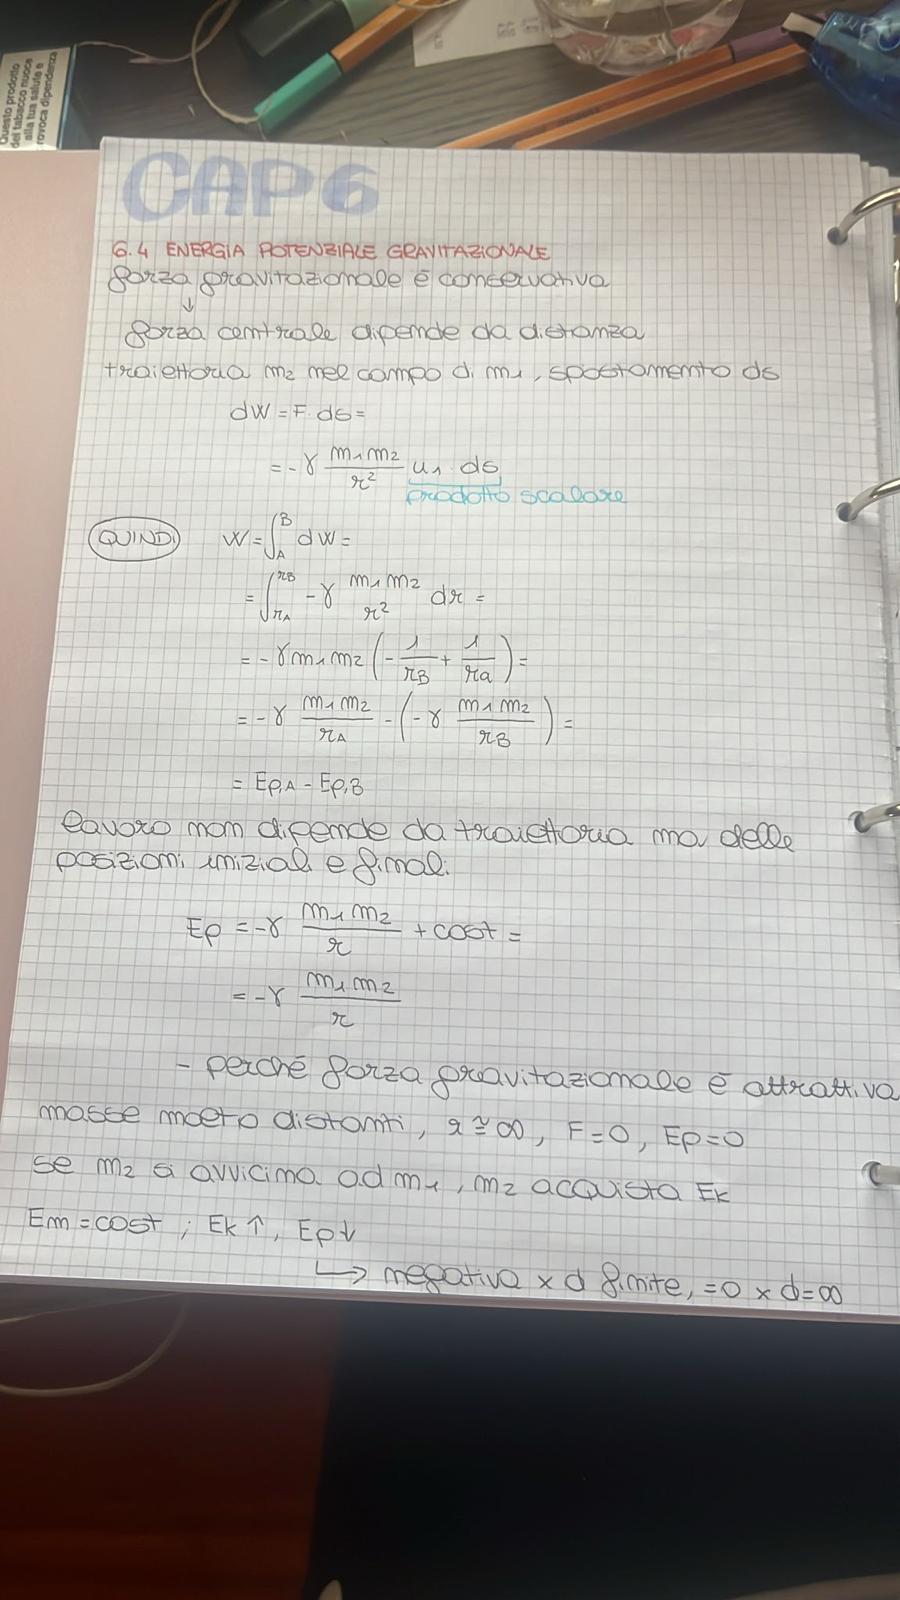 Questo prodotto
del tabacco nuoce
alla tua salute e
provoca dipendenza
CAP 6
6.4 ENERGIA POTENZIALE GRAVITAZIONALE
forza gravitazionale è conservativa
↓
forza centrale dipende da distanza
traiettoria m₂ nel campo di m₁, spostamento ds
dW = F · ds =
= -γ m₁m₂/r² u₁ · ds
prodotto scalare
QUINDI W = ∫_A^B dW =
= ∫_rA^rB -γ m₁m₂ / r² dr =
= -γ m₁m₂ (-1/rB + 1/ra) =
= -γ m₁m₂/rA - (-γ m₁m₂/rB) =
= Ep,A - Ep,B
lavoro non dipende da traiettoria ma delle
posizioni iniziali e finali
Ep = -γ m₁m₂/r + cost =
= -γ m₁m₂/r
- perché forza gravitazionale è attrattiva
masse molto distanti, r ≅ ∞, F=0, Ep=0
se m₂ si avvicina ad m₁, m₂ acquista Ek
Em = cost ; Ek ↑, Ep ↓
↳ negativa x d finite, =0 x d=∞